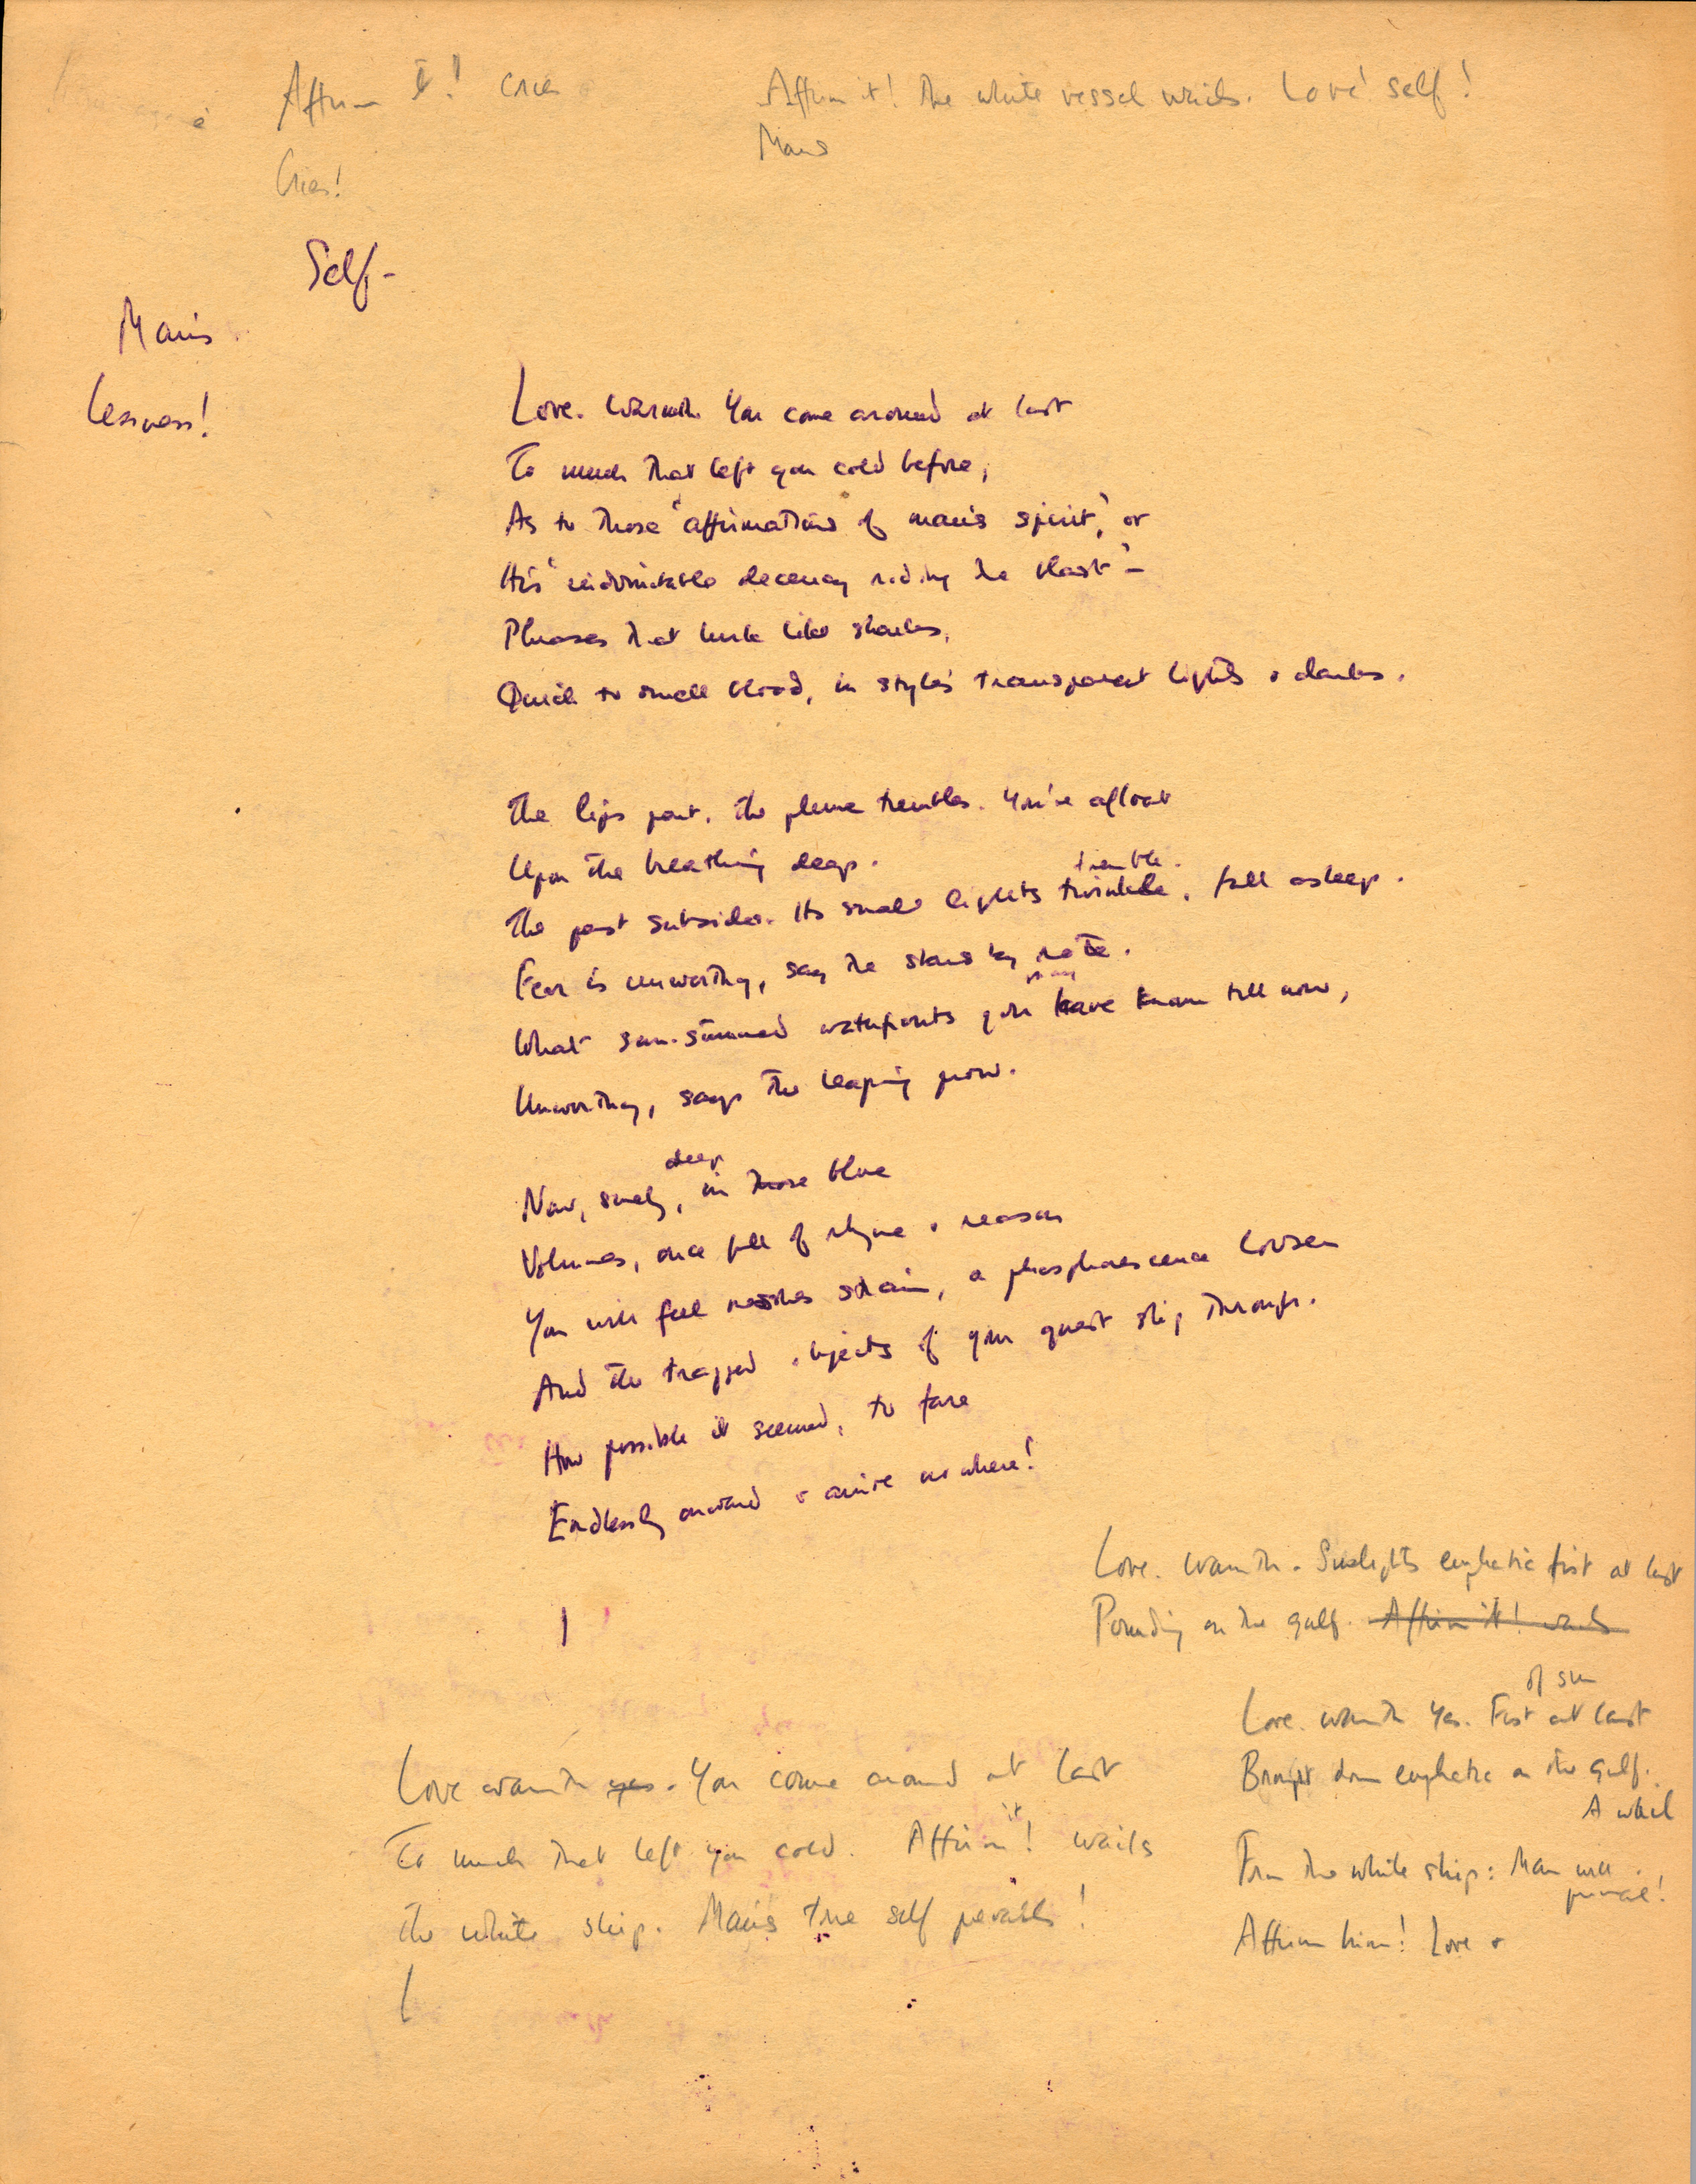 Affirm it! Cries
Cries!
Affirm it! The white vessel wails. Love! Self!
Mans
Self-
Man's
Lessness!
Love. Warmth. You come around at last
To much that left you cold before,
As to those 'affirmations of man's spirit,' or
His 'indomitable decency riding the blast' –
Phrases that lurk like sharks,
Quick to smell blood, in style's transparent lights & darks.
The lips part. The plume trembles. You're afloat
Upon the breathing deep.
tremble.
The past subsides. Its small lights twinkle, fall asleep.
Fear is unworthy, say the stars by rote.
may
What sun-stunned waterfronts you have known till now,
Unworthy, says the leaping prow.
deep
Now, surely, in those blue
Volumes, once full of rhyme & reason
You will feel meshes strain, a phosphorescence loosen
And the trapped objects of your quest slip through.
How possible it seemed, to fare
Endlessly onward & arrive nowhere!
Love. Warmth. Sunlight's emphatic fist at last
Pounding on the gulf. Affirm it! wails
of sun
Love. Warmth Yes. Fist at last
Brought down emphatic on the gulf.
A wail
From the white ship: Man will
prevail!
Affirm him! Love &
Love warmth yes. You come around at last
it
To much that left you cold. Affirm! wails
The white ship. Man's true self prevails!
L